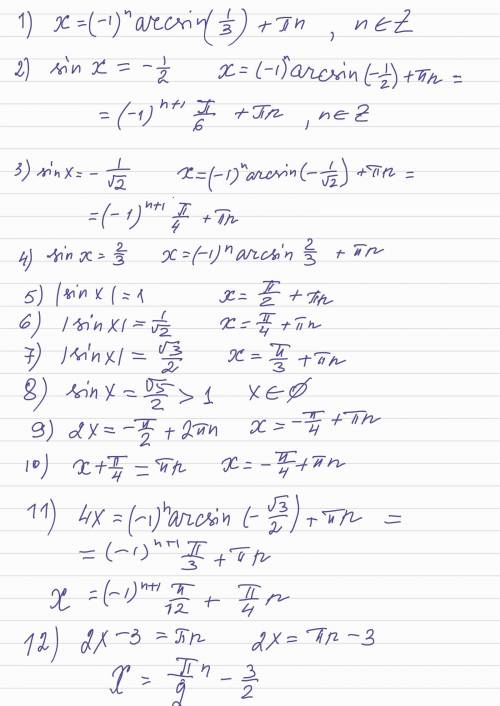 1) x = (-1)ⁿ arcsin(1/3) + πn , n ∈ Z
2) sin x = -1/2 x = (-1)ⁿ arcsin(-1/2) + πn =
= (-1)ⁿ⁺¹ π/6 + πn , n ∈ Z
3) sin x = - 1/√2 x = (-1)ⁿ arcsin(-1/√2) + πn =
= (-1)ⁿ⁺¹ π/4 + πn
4) sin x = 2/3 x = (-1)ⁿ arcsin 2/3 + πn
5) |sin x| = 1 x = π/2 + πn
6) |sin x| = 1/√2 x = π/4 + πn
7) |sin x| = √3/2 x = π/3 + πn
8) sin x = √5/2 > 1 x ∈ ∅
9) 2x = -π/2 + 2πn x = -π/4 + πn
10) x + π/4 = πn x = -π/4 + πn
11) 4x = (-1)ⁿ arcsin (-√3/2) + πn =
= (-1)ⁿ⁺¹ π/3 + πn
x = (-1)ⁿ⁺¹ π/12 + π/4 n
12) 2x - 3 = πn 2x = πn - 3
x = π/2 n - 3/2